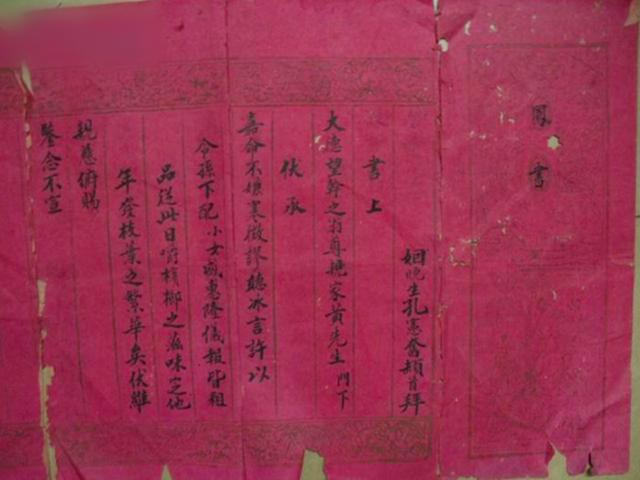 鳳書
姻晚生孔憲奮頓首拜
書上
大惪望幹之翁尊家黄先生門下
伏承
嘉命不嫌寒微謬聽冰言許以
令孫下配小女感惠隆儀報皆粗
品送此日嚼檳榔之滋味定他
年發枝葉之繁華矣伏維
親慈俯賜
鑒念不宣